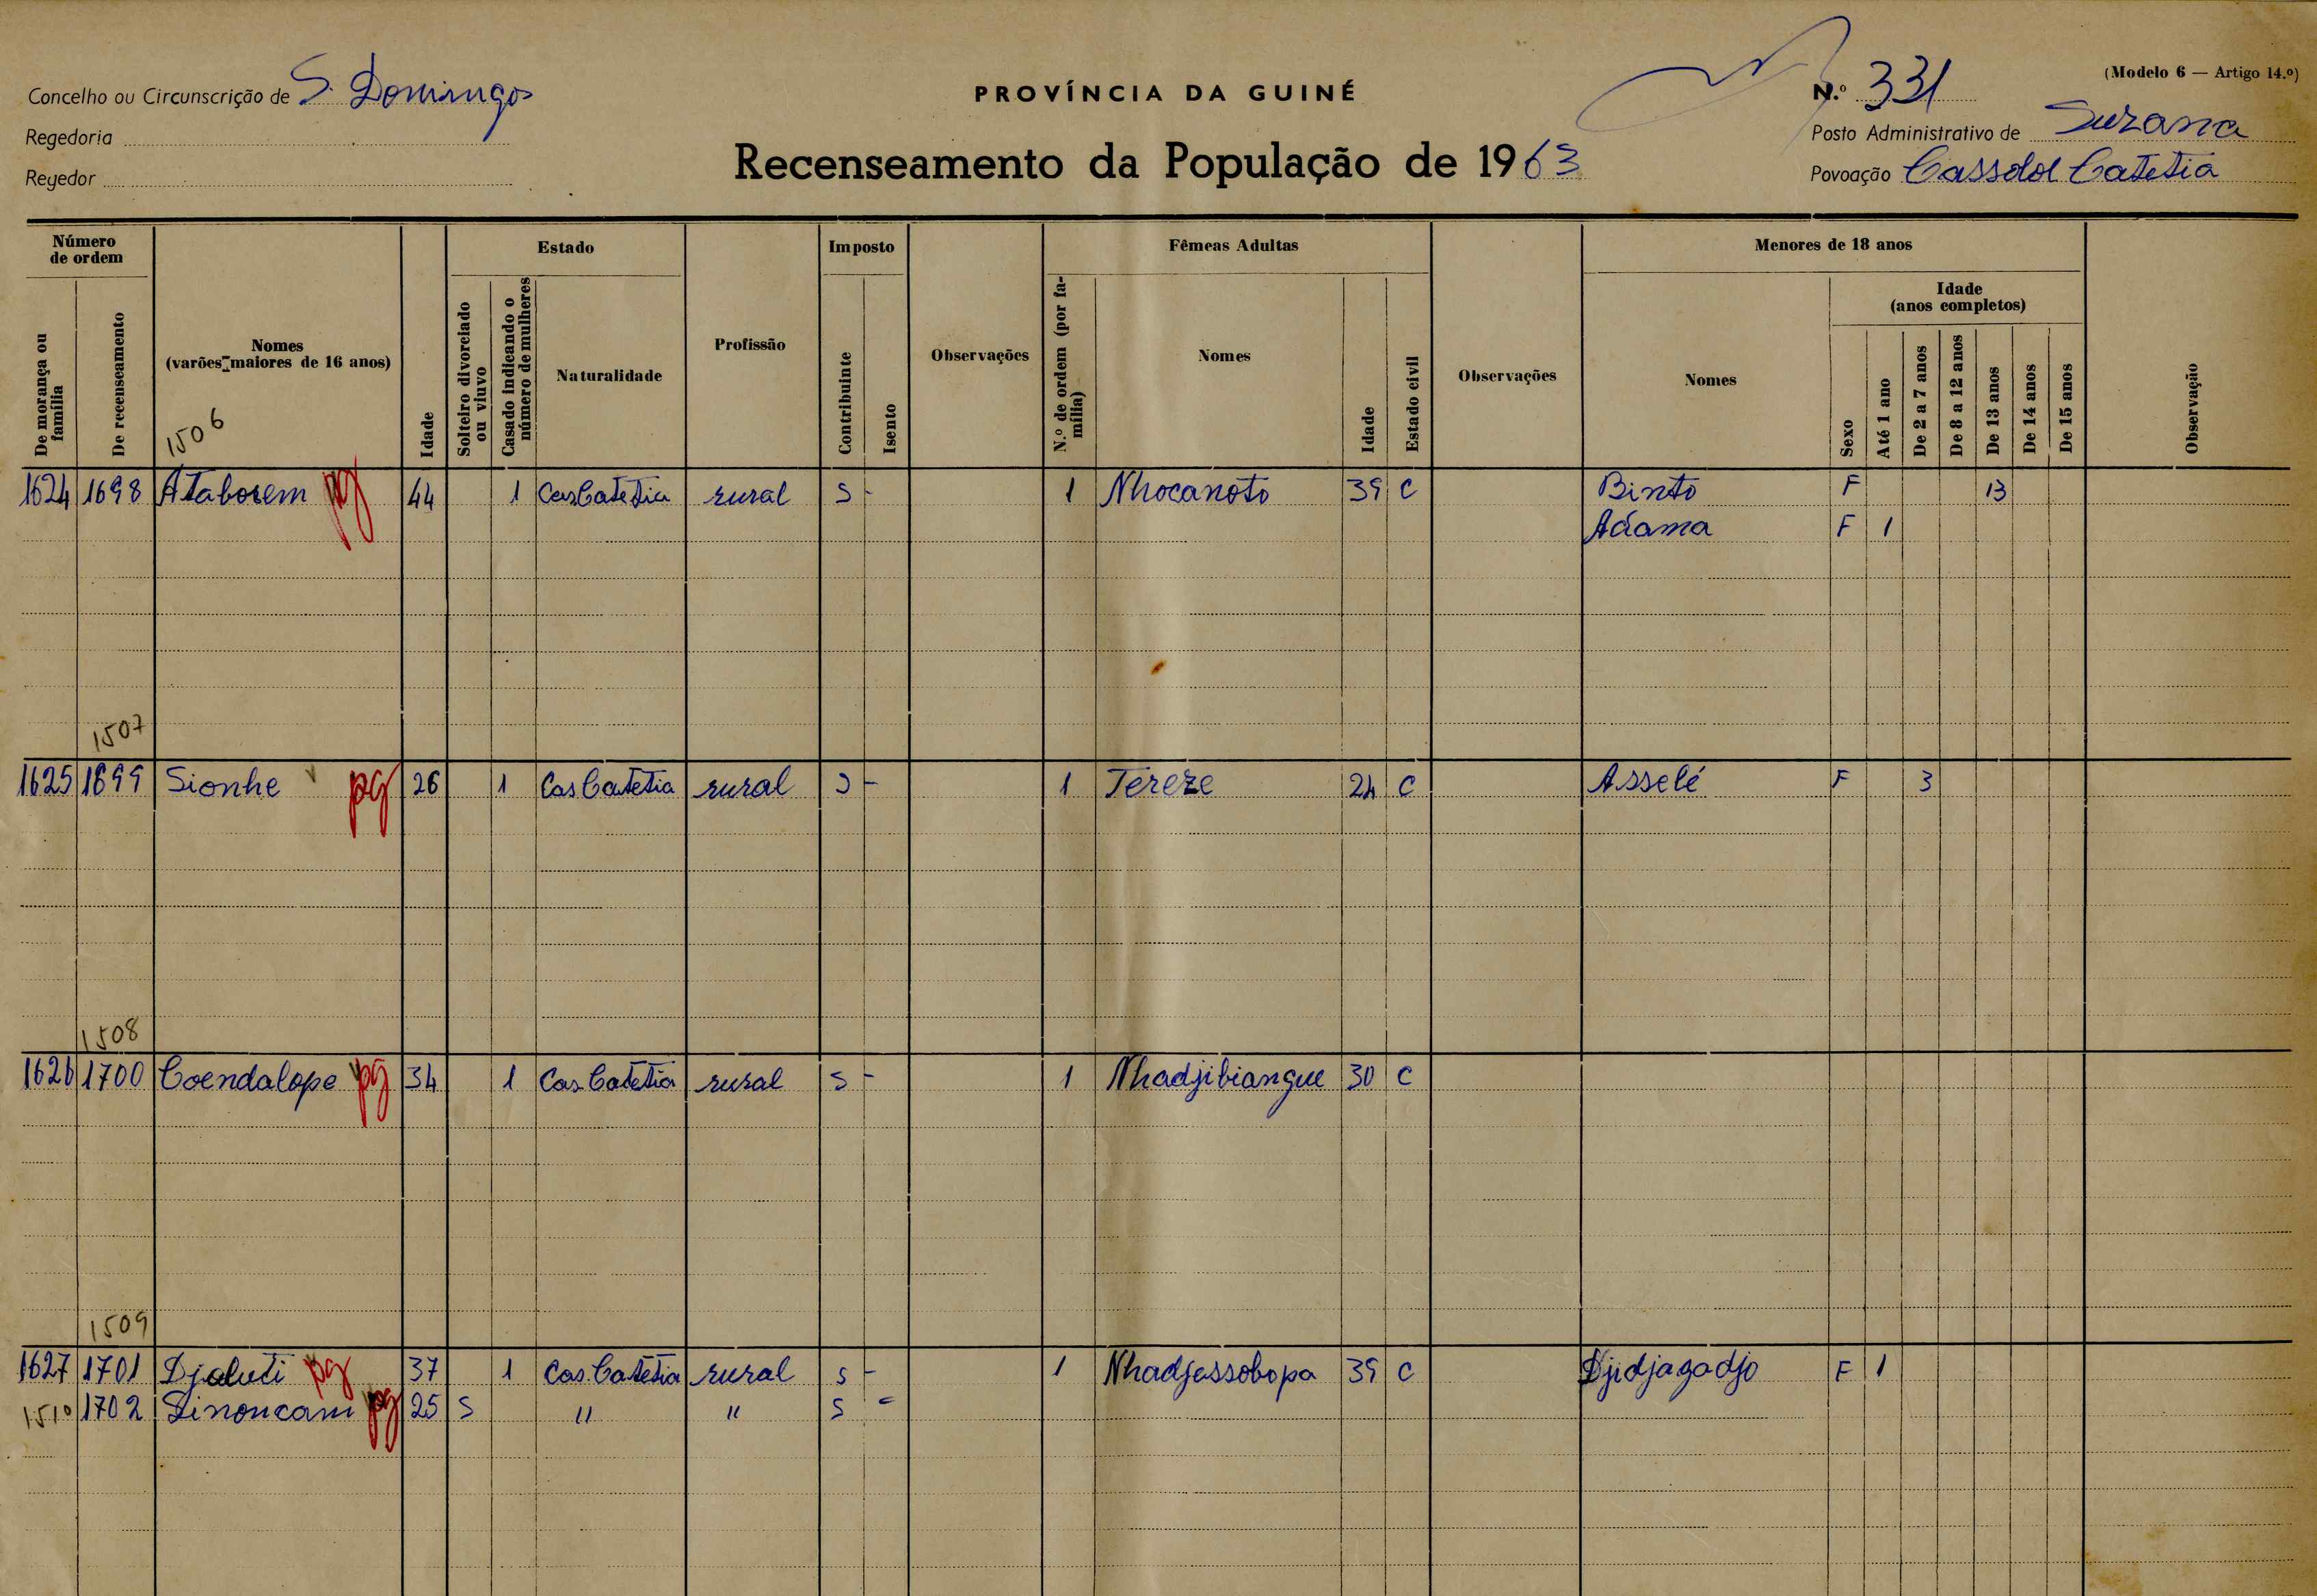 Concelho ou Circunscrição de S. Domingos
Regedoria
Reyedor
PROVÍNCIA DA GUINÉ
Recenseamento da População de 1963
(Modelo 6 — Artigo 14.º)
N.º 331
Posto Administrativo de Suzana
Povoação Cassolol Catetia
Número de ordem
De morança ou família
De recenseamento
Nomes (varões maiores de 16 anos)
Idade
Estado
Solteiro divorciado ou viuvo
Casado indicando o número de mulheres
Naturalidade
Profissão
Imposto
Contribuinte
Isento
Observações
Fêmeas Adultas
N.º de ordem (por família)
Nomes
Idade
Estado civil
Observações
Menores de 18 anos
Nomes
Sexo
Idade (anos completos)
Até 1 ano
De 2 a 7 anos
De 8 a 12 anos
De 13 anos
De 14 anos
De 15 anos
Observação
1506
1624 1698 Ataborem pg 44 1 Cas Catetia rural S - 1 Nhocanoto 39 C Binto F 13
Adama F 1
1507
1625 1699 Sionhe pg 26 1 Cas Catetia rural S - 1 Tereze 24 C Asselé F 3
1508
1626 1700 Coendalope pg 34 1 Cas Catetia rural S - 1 Nhadjibiangue 30 C
1509
1627 1701 Djaluti pg 37 1 Cas Catetia rural S - 1 Nhadjessobopa 39 C Djidjagadjo F 1
1510 1702 Sinoncam pg 25 S " " S -